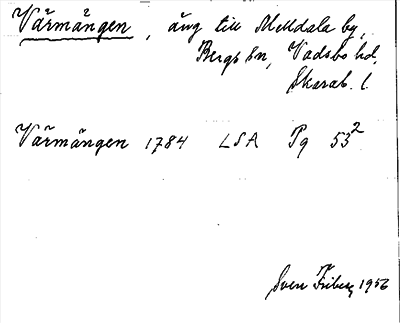 Värmängen, äng till Melldala by,
Bergs sn, Vadsbo hd.
Skarab. l.
Värmängen 1784 LSA Pg 53²
Sven Friberg 1956